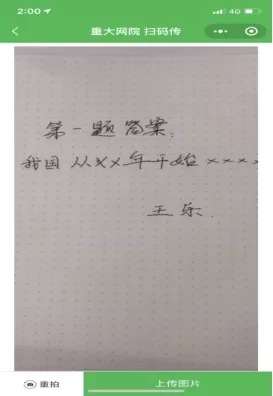 2:00
4G
重大网院 扫码传
第一题答案:
我国从XX年开始XXXX
王乐
重拍
上传图片